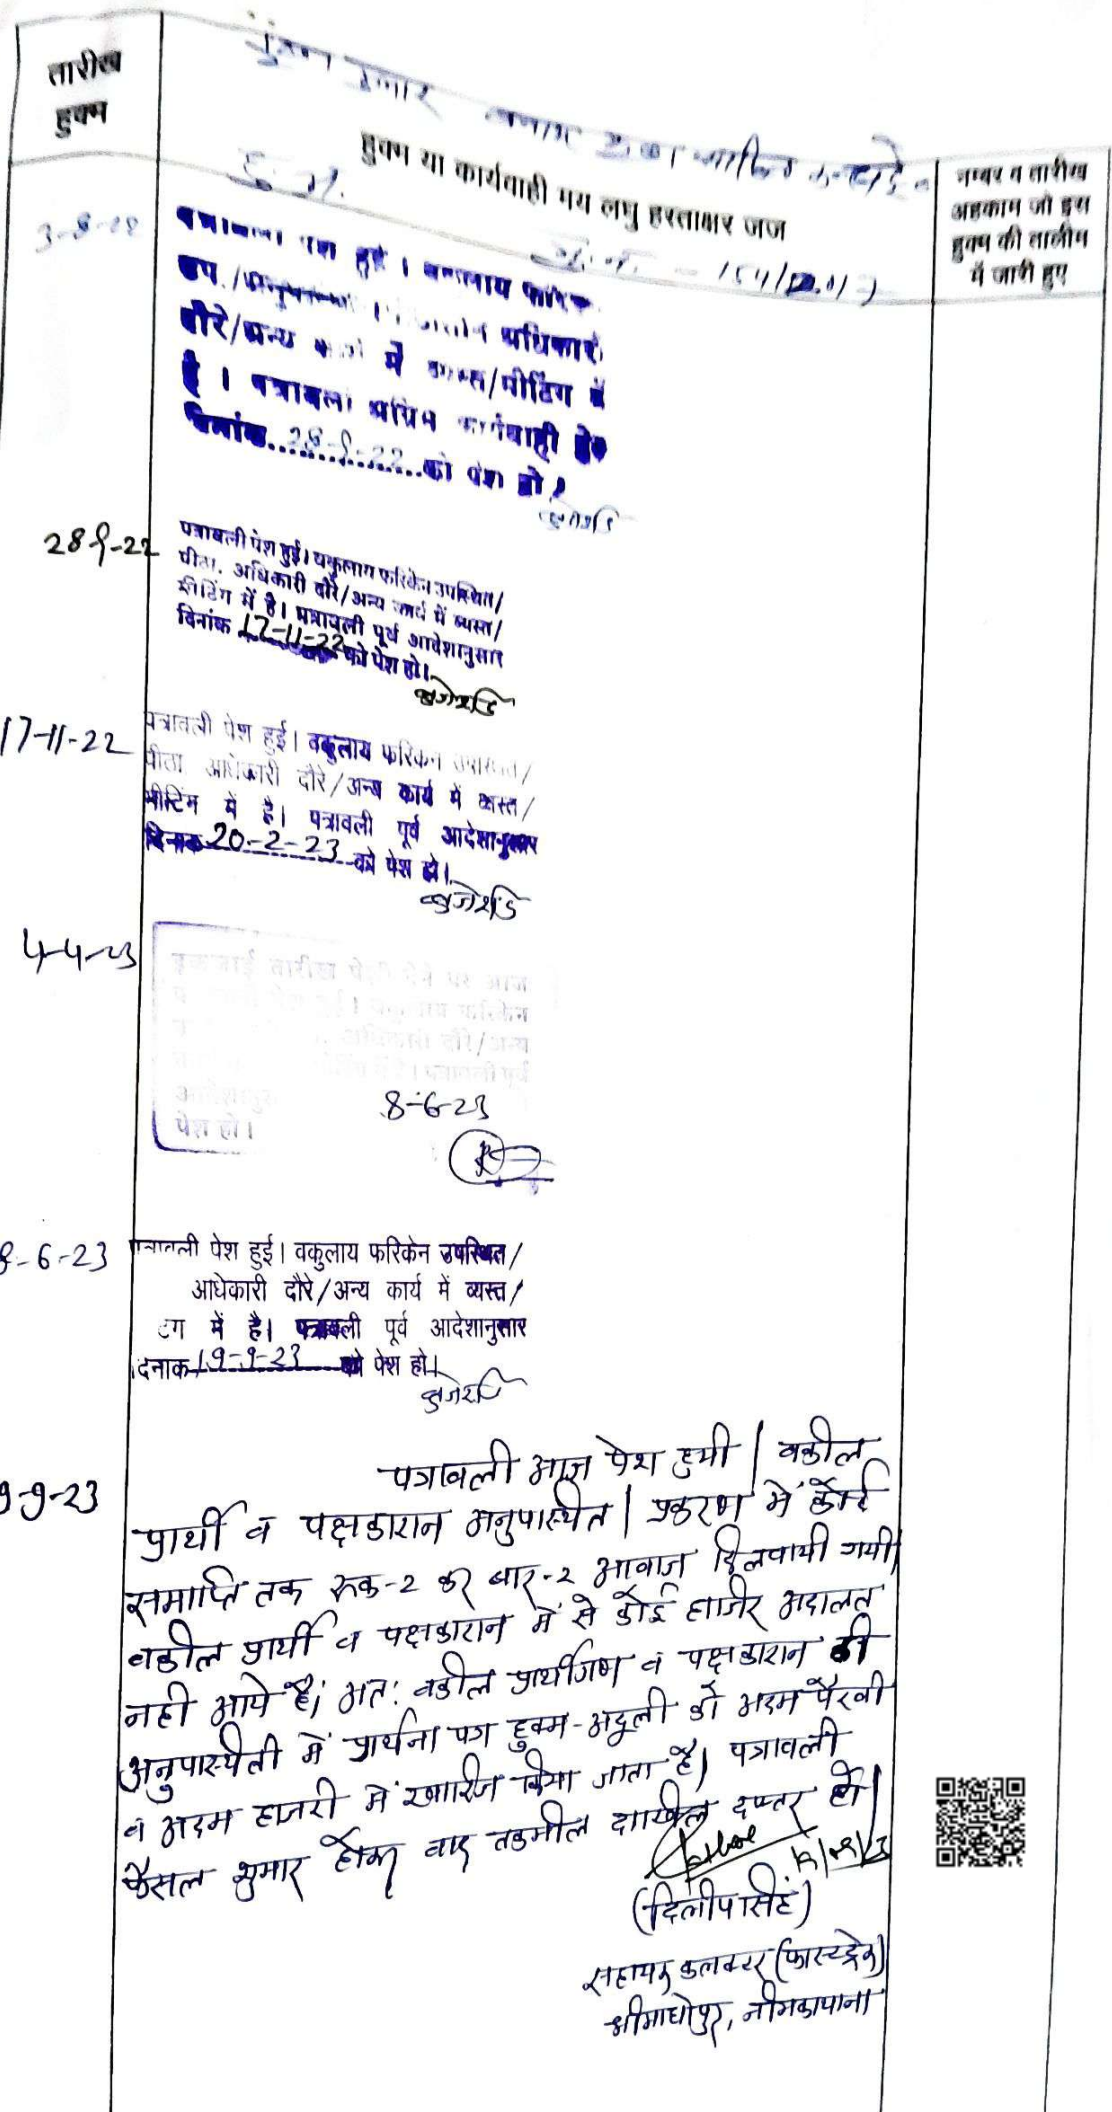 तारीख
हुक्म
कुमार बनाम
हुक्म या कार्यवाही मय लघु हस्ताक्षर जज
नम्बर व तारीख
अहकाम जो इस
हुक्म की तालीम
में जारी हुए
3-8-22
पत्रावली पेश हुई । वकुलाय फरिकेन
उप./ अधिकारी
दौरे/अन्य कार्य में व्यस्त/मीटिंग में
है । पत्रावली अग्रिम कार्यवाही हेतु
दिनांक 28-9-22 को पेश हो ।
28-9-22
पत्रावली पेश हुई। वकुलाय फरिकेन उपस्थित/
पीठा. अधिकारी दौरे/अन्य कार्य में व्यस्त/
मीटिंग में है। पत्रावली पूर्व आदेशानुसार
दिनांक 17-11-22 को पेश हो।
17-11-22
पत्रावली पेश हुई। वकुलाय फरिकेन उपस्थित/
पीठा अधिकारी दौरे/अन्य कार्य में व्यस्त/
मीटिंग में है। पत्रावली पूर्व आदेशानुसार
दिनांक 20-2-23 को पेश हो।
4-4-23
तारीख पेशी पर आज
पेश हुई। वकुलाय फरिकेन
अधिकारी दौरे/अन्य
में है। पत्रावली पूर्व
आदेशानुसार 8-6-23
पेश हो।
8-6-23
पत्रावली पेश हुई। वकुलाय फरिकेन उपस्थित/
अधिकारी दौरे/अन्य कार्य में व्यस्त/
टिंग में है। पत्रावली पूर्व आदेशानुसार
दिनांक 19-9-23 को पेश हो।
9-9-23
पत्रावली आज पेश हुयी। वकील
प्रार्थी व पक्षकारान अनुपास्थित। प्रकरण में कोर्ट
समाप्ति तक रूक-2 कर बार-2 आवाज दिलवायी गयी।
वकील प्रार्थी व पक्षकारान में से कोई हाजिर अदालत
नही आये है। अत: वकील प्रार्थीगण व पक्षकारान की
अनुपास्थिती में प्रार्थना पत्र हुक्म-अदूली को अदम पैरवी
व अदम हाजरी में खारिज किया जाता है। पत्रावली
फैसल शुमार होकर बाद तकमील दाखिल दफ्तर हो।
(दिलीपसिंह)
सहायक कलक्टर (फास्ट्रेक)
श्रीमाधोपुर, नीमकाथाना